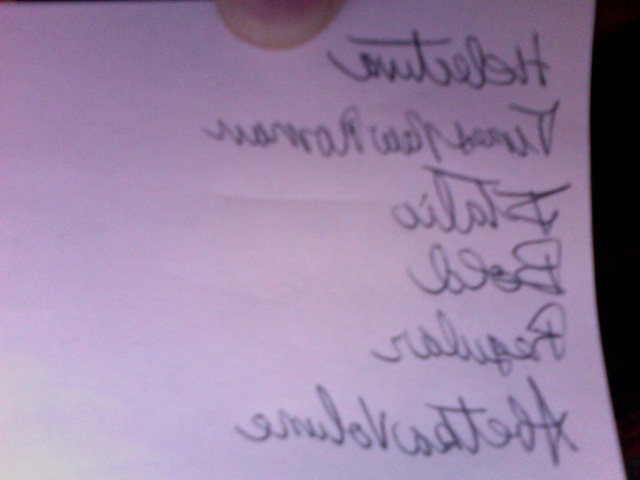 Helectura
Times New Roman
Italic
Bold
Regular
Abetka Volume